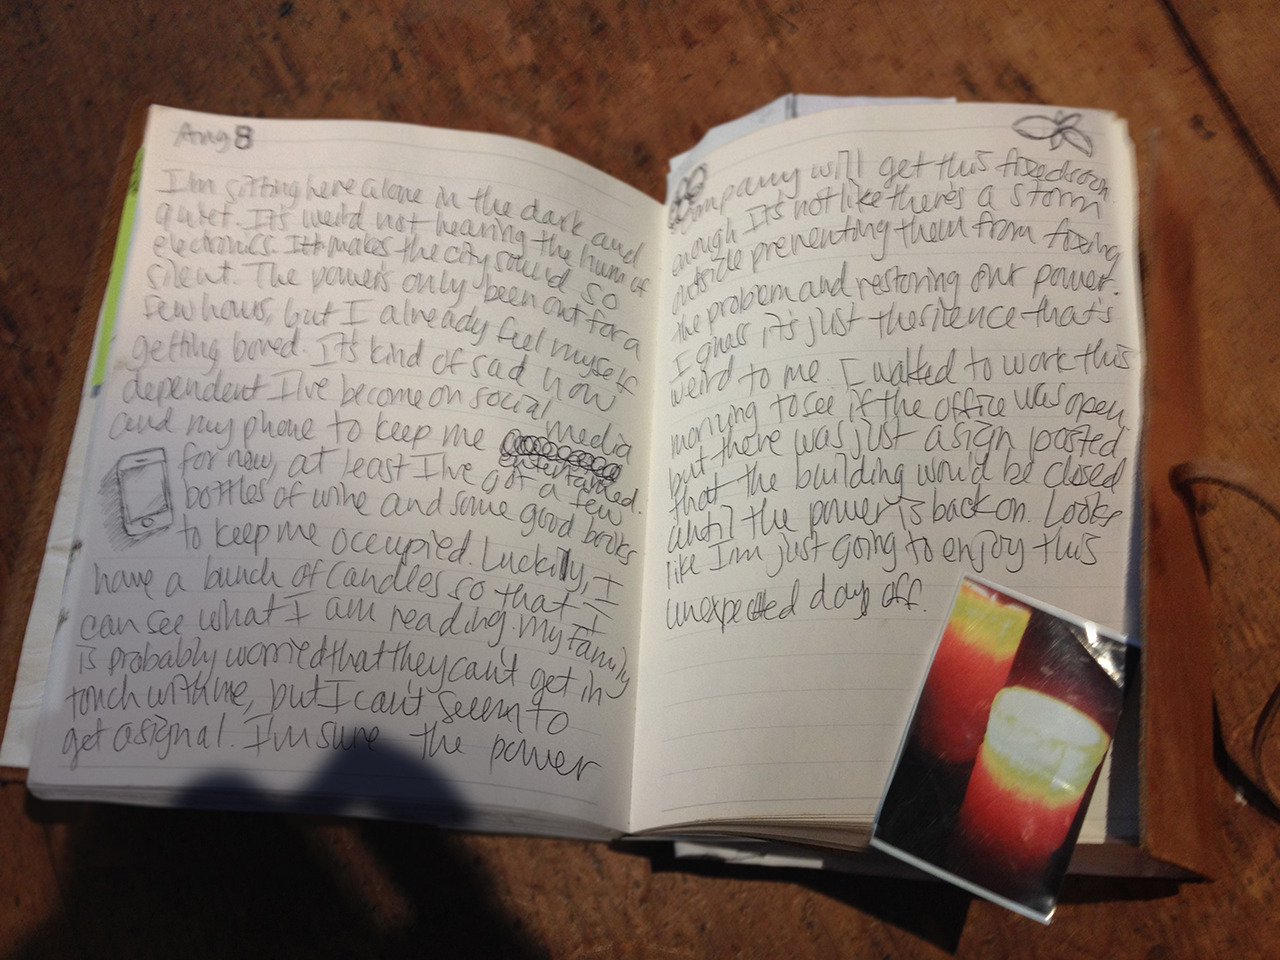 Aug 8
I'm sitting here alone in the dark and
quiet. It's weird not hearing the hum of
electronics. It makes the city sound so
silent. The power's only been out for a
few hours, but I already feel myself
getting bored. It's kind of sad how
dependent I've become on social media
and my phone to keep me entertained.
for now, at least I've got a few
bottles of wine and some good books
to keep me occupied. Luckily, I
have a bunch of candles so that I
can see what I am reading. My family
is probably worried that they can't get in
touch with me, but I can't seem to
get a signal. I'm sure the power
company will get this fixed soon
enough. It's not like there's a storm
outside preventing them from fixing
the problem and restoring our power.
I guess it's just the silence that's
weird to me. I walked to work this
morning to see if the office was open,
but there was just a sign posted
that the building would be closed
until the power is back on. Looks
like I'm just going to enjoy this
unexpected day off.